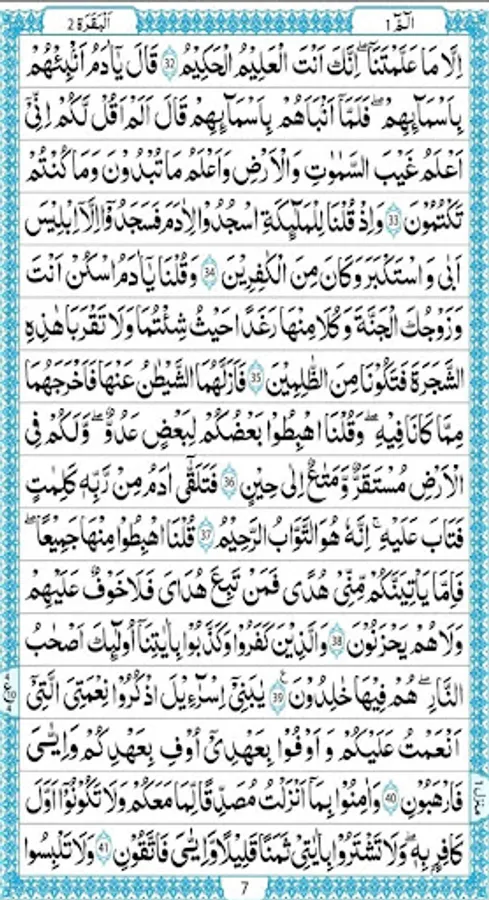 الٓمّٓ ١
اَلْبَقَرَة 2
اِلَّا مَا عَلَّمْتَنَا ؕ اِنَّكَ اَنْتَ الْعَلِيْمُ الْحَكِيْمُ 32 قَالَ يٰۤاٰدَمُ اَنْۢبِئْهُمْ
بِاَسْمَآئِهِمْ ۚ فَلَمَّاۤ اَنْۢبَاَهُمْ بِاَسْمَآئِهِمْ قَالَ اَلَمْ اَقُلْ لَّكُمْ اِنِّىْۤ
اَعْلَمُ غَيْبَ السَّمٰوٰتِ وَالْاَرْضِ وَاَعْلَمُ مَا تُبْدُوْنَ وَمَا كُنْتُمْ
تَكْتُمُوْنَ 33 وَاِذْ قُلْنَا لِلْمَلٰٓئِكَةِ اسْجُدُوْا لِاٰدَمَ فَسَجَدُوْۤا اِلَّاۤ اِبْلِيْسَ
اَبٰى وَاسْتَكْبَرَ وَكَانَ مِنَ الْكٰفِرِيْنَ 34 وَقُلْنَا يٰۤاٰدَمُ اسْكُنْ اَنْتَ
وَزَوْجُكَ الْجَنَّةَ وَكُلَا مِنْهَا رَغَدًا حَيْثُ شِئْتُمَا وَلَا تَقْرَبَا هٰذِهِ
الشَّجَرَةَ فَتَكُوْنَا مِنَ الظّٰلِمِيْنَ 35 فَاَزَلَّهُمَا الشَّيْطٰنُ عَنْهَا فَاَخْرَجَهُمَا
مِمَّا كَانَا فِيْهِ ۪ وَقُلْنَا اهْبِطُوْا بَعْضُكُمْ لِبَعْضٍ عَدُوٌّ ۚ وَلَكُمْ فِى
الْاَرْضِ مُسْتَقَرٌّ وَّمَتَاعٌ اِلٰى حِيْنٍ 36 فَتَلَقّٰٓى اٰدَمُ مِنْ رَّبِّهٖ كَلِمٰتٍ
فَتَابَ عَلَيْهِ ؕ اِنَّهٗ هُوَ التَّوَّابُ الرَّحِيْمُ 37 قُلْنَا اهْبِطُوْا مِنْهَا جَمِيْعًا ۚ
فَاِمَّا يَاْتِيَنَّكُمْ مِّنِّىْ هُدًى فَمَنْ تَبِعَ هُدَاىَ فَلَا خَوْفٌ عَلَيْهِمْ
وَلَا هُمْ يَحْزَنُوْنَ 38 وَالَّذِيْنَ كَفَرُوْا وَكَذَّبُوْا بِاٰيٰتِنَاۤ اُولٰٓئِكَ اَصْحٰبُ
النَّارِ ۚ هُمْ فِيْهَا خٰلِدُوْنَ 39 يٰبَنِىْۤ اِسْرَآءِيْلَ اذْكُرُوْا نِعْمَتِىَ الَّتِىْۤ
اَنْعَمْتُ عَلَيْكُمْ وَاَوْفُوْا بِعَهْدِىْۤ اُوْفِ بِعَهْدِكُمْ وَاِيَّاىَ
فَارْهَبُوْنِ 40 وَاٰمِنُوْا بِمَاۤ اَنْزَلْتُ مُصَدِّقًا لِّمَا مَعَكُمْ وَلَا تَكُوْنُوْۤا اَوَّلَ
كَافِرٍۭ بِهٖ ۪ وَلَا تَشْتَرُوْا بِاٰيٰتِىْ ثَمَنًا قَلِيْلًا وَّاِيَّاىَ فَاتَّقُوْنِ 41 وَلَا تَلْبِسُوا
منزل ١
7